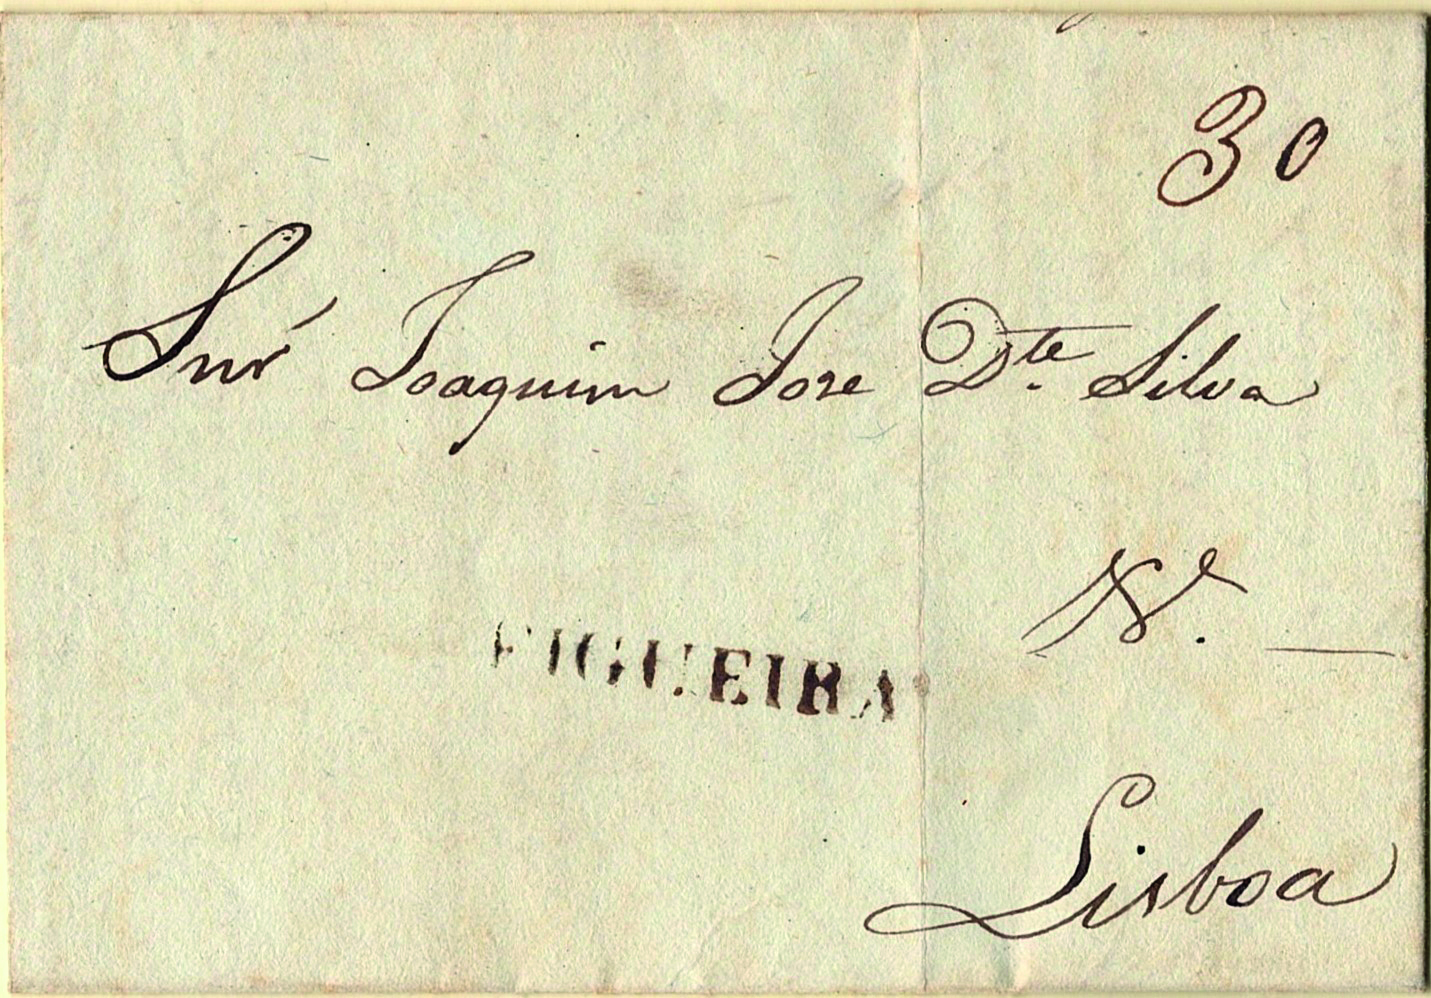 30
Snŕ Joaquim Jose Dte. Silva
FIGUEIRA
Lisboa